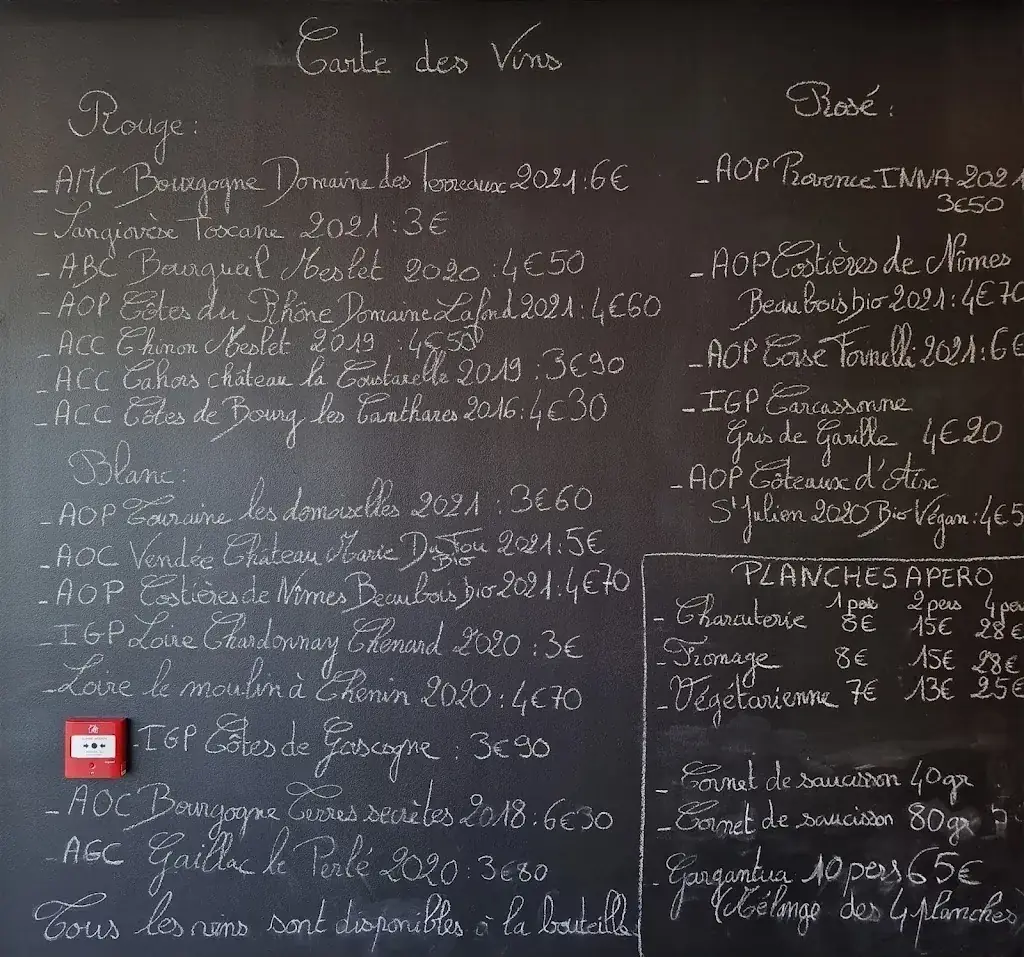 Carte des Vins
Rouge:
- AMC Bourgogne Domaine des Terreaux 2021:6€
- Sangiovèse Toscane 2021:3€
- ABC Bourgueil Meslet 2020:4€50
- AOP Côtes du Rhône Domaine Lafond 2021:4€60
- ACC Chinon Meslet 2019:4€50
- ACC Cahors château la Coustarelle 2019:3€90
- ACC Côtes de Bourg les Tanthares 2016:4€30
Blanc:
- AOP Touraine les demoiselles 2021:3€60
- AOC Vendée Château Marie Du Fou 2021:5€
Bio
- AOP Costières de Nîmes Beaubois bio 2021:4€70
- IGP Loire Chardonnay Chenard 2020:3€
- Loire le moulin à Chenin 2020:4€70
- IGP Côtes de Gascogne : 3€90
- AOC Bourgogne Terres secrètes 2018:6€30
- AGC Gaillac le Perlé 2020:3€80
Tous les vins sont disponibles à la bouteille
Rosé:
- AOP Provence INNA 2021
3€50
- AOP Costières de Nîmes
Beaubois bio 2021:4€70
- AOP Corse Tornelli 2021:6€
- IGP Carcassonne
Gris de Garille 4€20
- AOP Côteaux d'Aix
St Julien 2020 Bio Végan:4€5
PLANCHES APERO
1 pers 2 pers 4 pers
- Charcuterie 8€ 15€ 28€
- Fromage 8€ 15€ 28€
- Végétarienne 7€ 13€ 25€
- Cornet de saucisson 40gr
- Cornet de saucisson 80gr
- Gargantua 10 pers 65€
(Mélange des 4 planches)